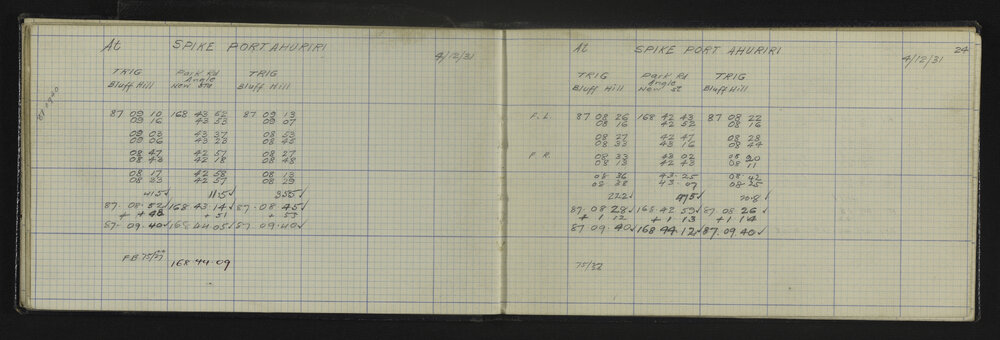 At SPIKE PORT AHURIRI
4/12/31
TRIG Park Rd TRIG
Angle
Bluff Hill New Sta Bluff Hill
87 09 10 168 43 52 87 09 13
09 16 43 53 09 07
09 03 43 37 08 53
09 06 43 23 08 43
08 47 42 51 08 27
08 43 42 18 08 48
08 17 42 58 08 13
08 33 42 57 08 29
415√ 115√ 355√
87. 08. 52√ 168. 43. 14√ 87. 08. 45√
+ 48 + 51 + 55
87. 09. 40√ 168 44 05√ 87. 09. 40√
FB 75/57
168 44 09
At SPIKE PORT AHURIRI 24
4/12/31
TRIG Park Rd TRIG
Angle
Bluff Hill New St Bluff Hill
F.L 87 08 26 168 42 43 87 08 22
08 16 42 52 08 16
08 27 42 47 08 28
08 33 43 16 08 44
F.R. 08 33 43 02 08 20
08 13 42 43 08 11
08 36 43. 25 08 42
08 38 43. 07 08 25
222√ 475√ 208√
87. 08 28√ 168 42 59√ 87. 08 26√
+ 1 12 + 1 13 + 1. 14
87 09. 40√ 168 44. 12√ 87. 09. 40√